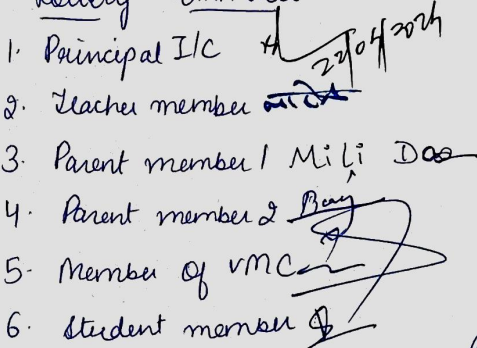 1. Principal I/C 22/04/2024
2. Teacher member
3. Parent member 1 Mili Das
4. Parent member 2
5- Member of VMC
6. Student member